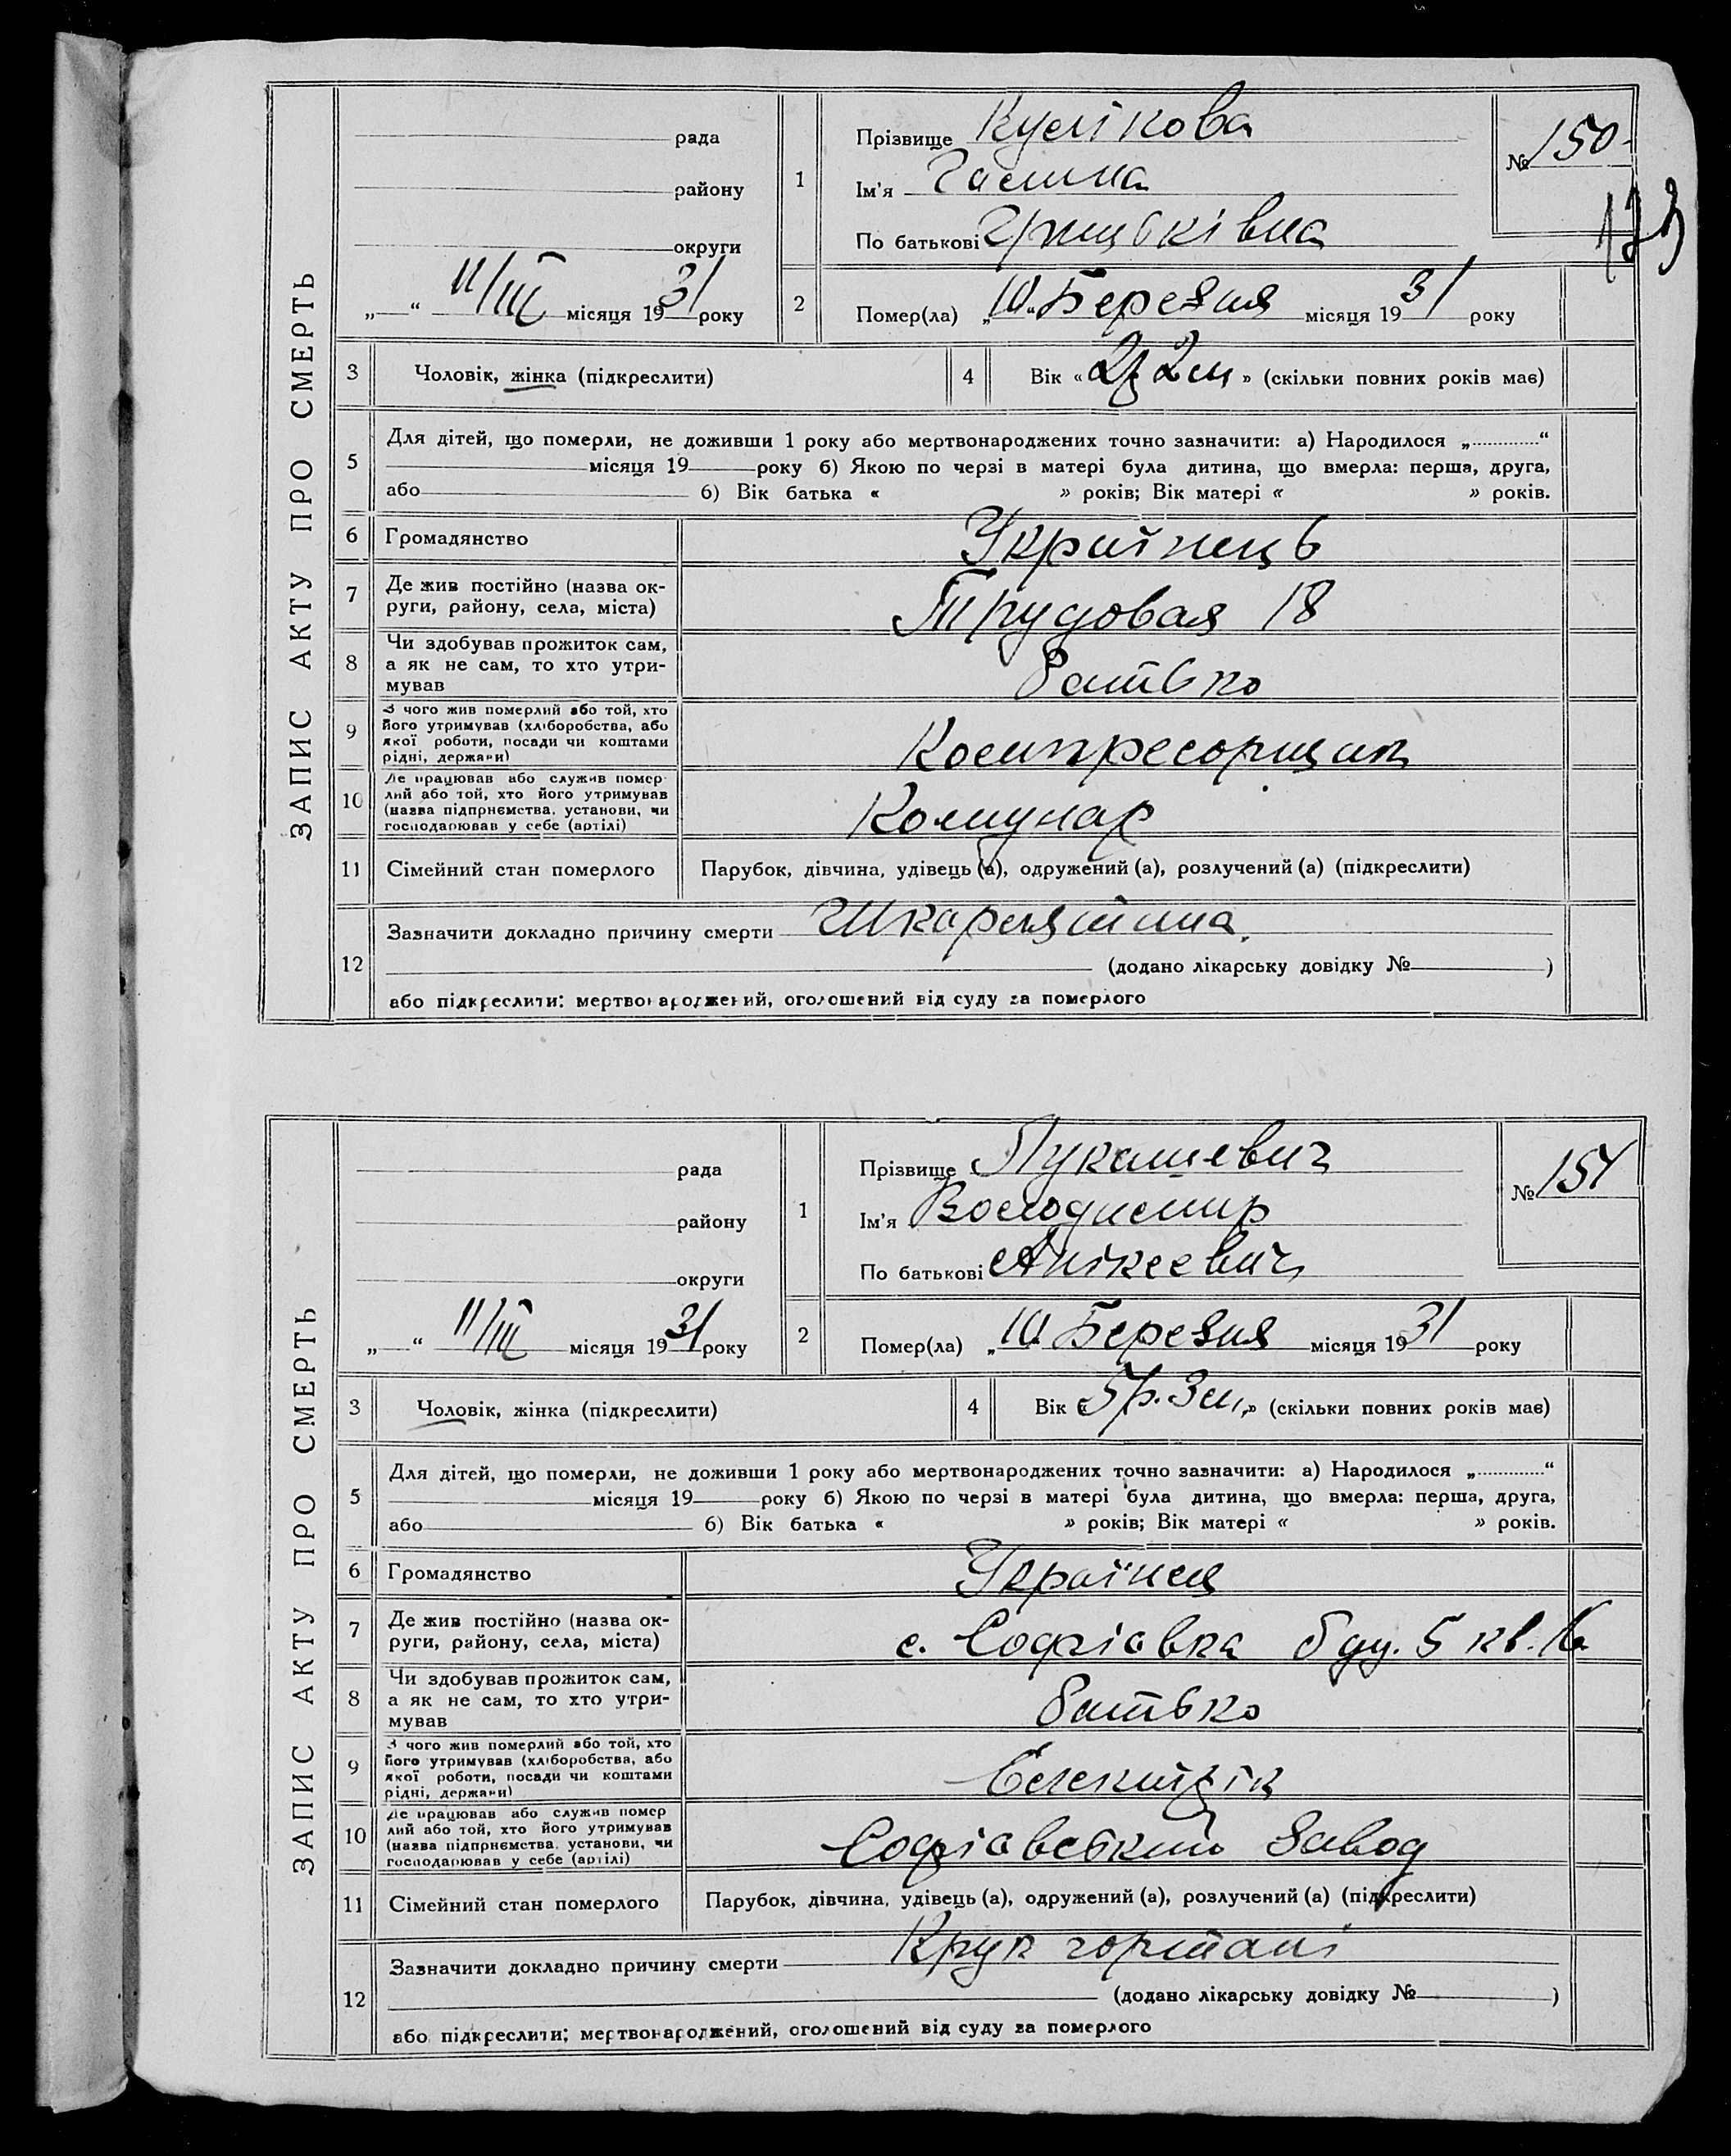 ЗАПИС АКТУ ПРО СМЕРТЬ
рада
району
округи
„ “ 11/III місяця 1931 року
1
Прізвище Кулікова
Ім'я Галина
По батькові Грицьківна
№ 150
173
2
Помер(ла) „10“ Березня місяця 1931 року
3
Чоловік, жінка (підкреслити)
4
Вік « 2р 2м » (скільки повних років має)
5
Для дітей, що померли, не доживши 1 року або мертвонароджених точно зазначити: а) Народилося „ “
місяця 19 року б) Якою по черзі в матері була дитина, що вмерла: перша, друга,
або б) Вік батька « » років; Вік матері « » років.
6
Громадянство
Українець
7
Де жив постійно (назва ок-
руги, району, села, міста)
Трудовая 18
8
Чи здобував прожиток сам,
а як не сам, то хто утри-
мував
батько
9
З чого жив померлий або той, хто
його утримував (хліборобства, або
якої роботи, посади чи коштами
рідні, держави)
Компресорщик
10
Де працював або служив помер-
лий або той, хто його утримував
(назва підприємства, установи, чи
господарював у себе (артілі)
Комунар
11
Сімейний стан померлого
Парубок, дівчина, удівець (а), одружений (а), розлучений (а) (підкреслити)
12
Зазначити докладно причину смерти Шкарлятина.
(додано лікарську довідку № )
або підкреслити: мертвонароджений, оголошений від суду за померлого
ЗАПИС АКТУ ПРО СМЕРТЬ
рада
району
округи
„ “ 11/III місяця 1931 року
1
Прізвище Лукашевич
Ім'я Володимир
По батькові Анікеевич
№ 151
2
Помер(ла) „10 Березня місяця 1931 року
3
Чоловік, жінка (підкреслити)
4
Вік « 5р. 3м. » (скільки повних років має)
5
Для дітей, що померли, не доживши 1 року або мертвонароджених точно зазначити: а) Народилося „ “
місяця 19 року б) Якою по черзі в матері була дитина, що вмерла: перша, друга,
або б) Вік батька « » років; Вік матері « » років.
6
Громадянство
7
Де жив постійно (назва ок-
руги, району, села, міста)
с. Софіовка буд. 5 кв. 16
8
Чи здобував прожиток сам,
а як не сам, то хто утри-
мував
батько
9
З чого жив померлий або той, хто
його утримував (хліборобства, або
якої роботи, посади чи коштами
рідні, держави)
10
Де працював або служив помер
лий або той, хто його утримував
(назва підприємства, установи, чи
господарював у себе (артілі)
Софіовський Завод
11
Сімейний стан померлого
Парубок, дівчина, удівець (а), одружений (а), розлучений (а) (підкреслити)
12
Зазначити докладно причину смерти Круп гортані
(додано лікарську довідку № )
або підкреслити: мертвонароджений, оголошений від суду за померлого